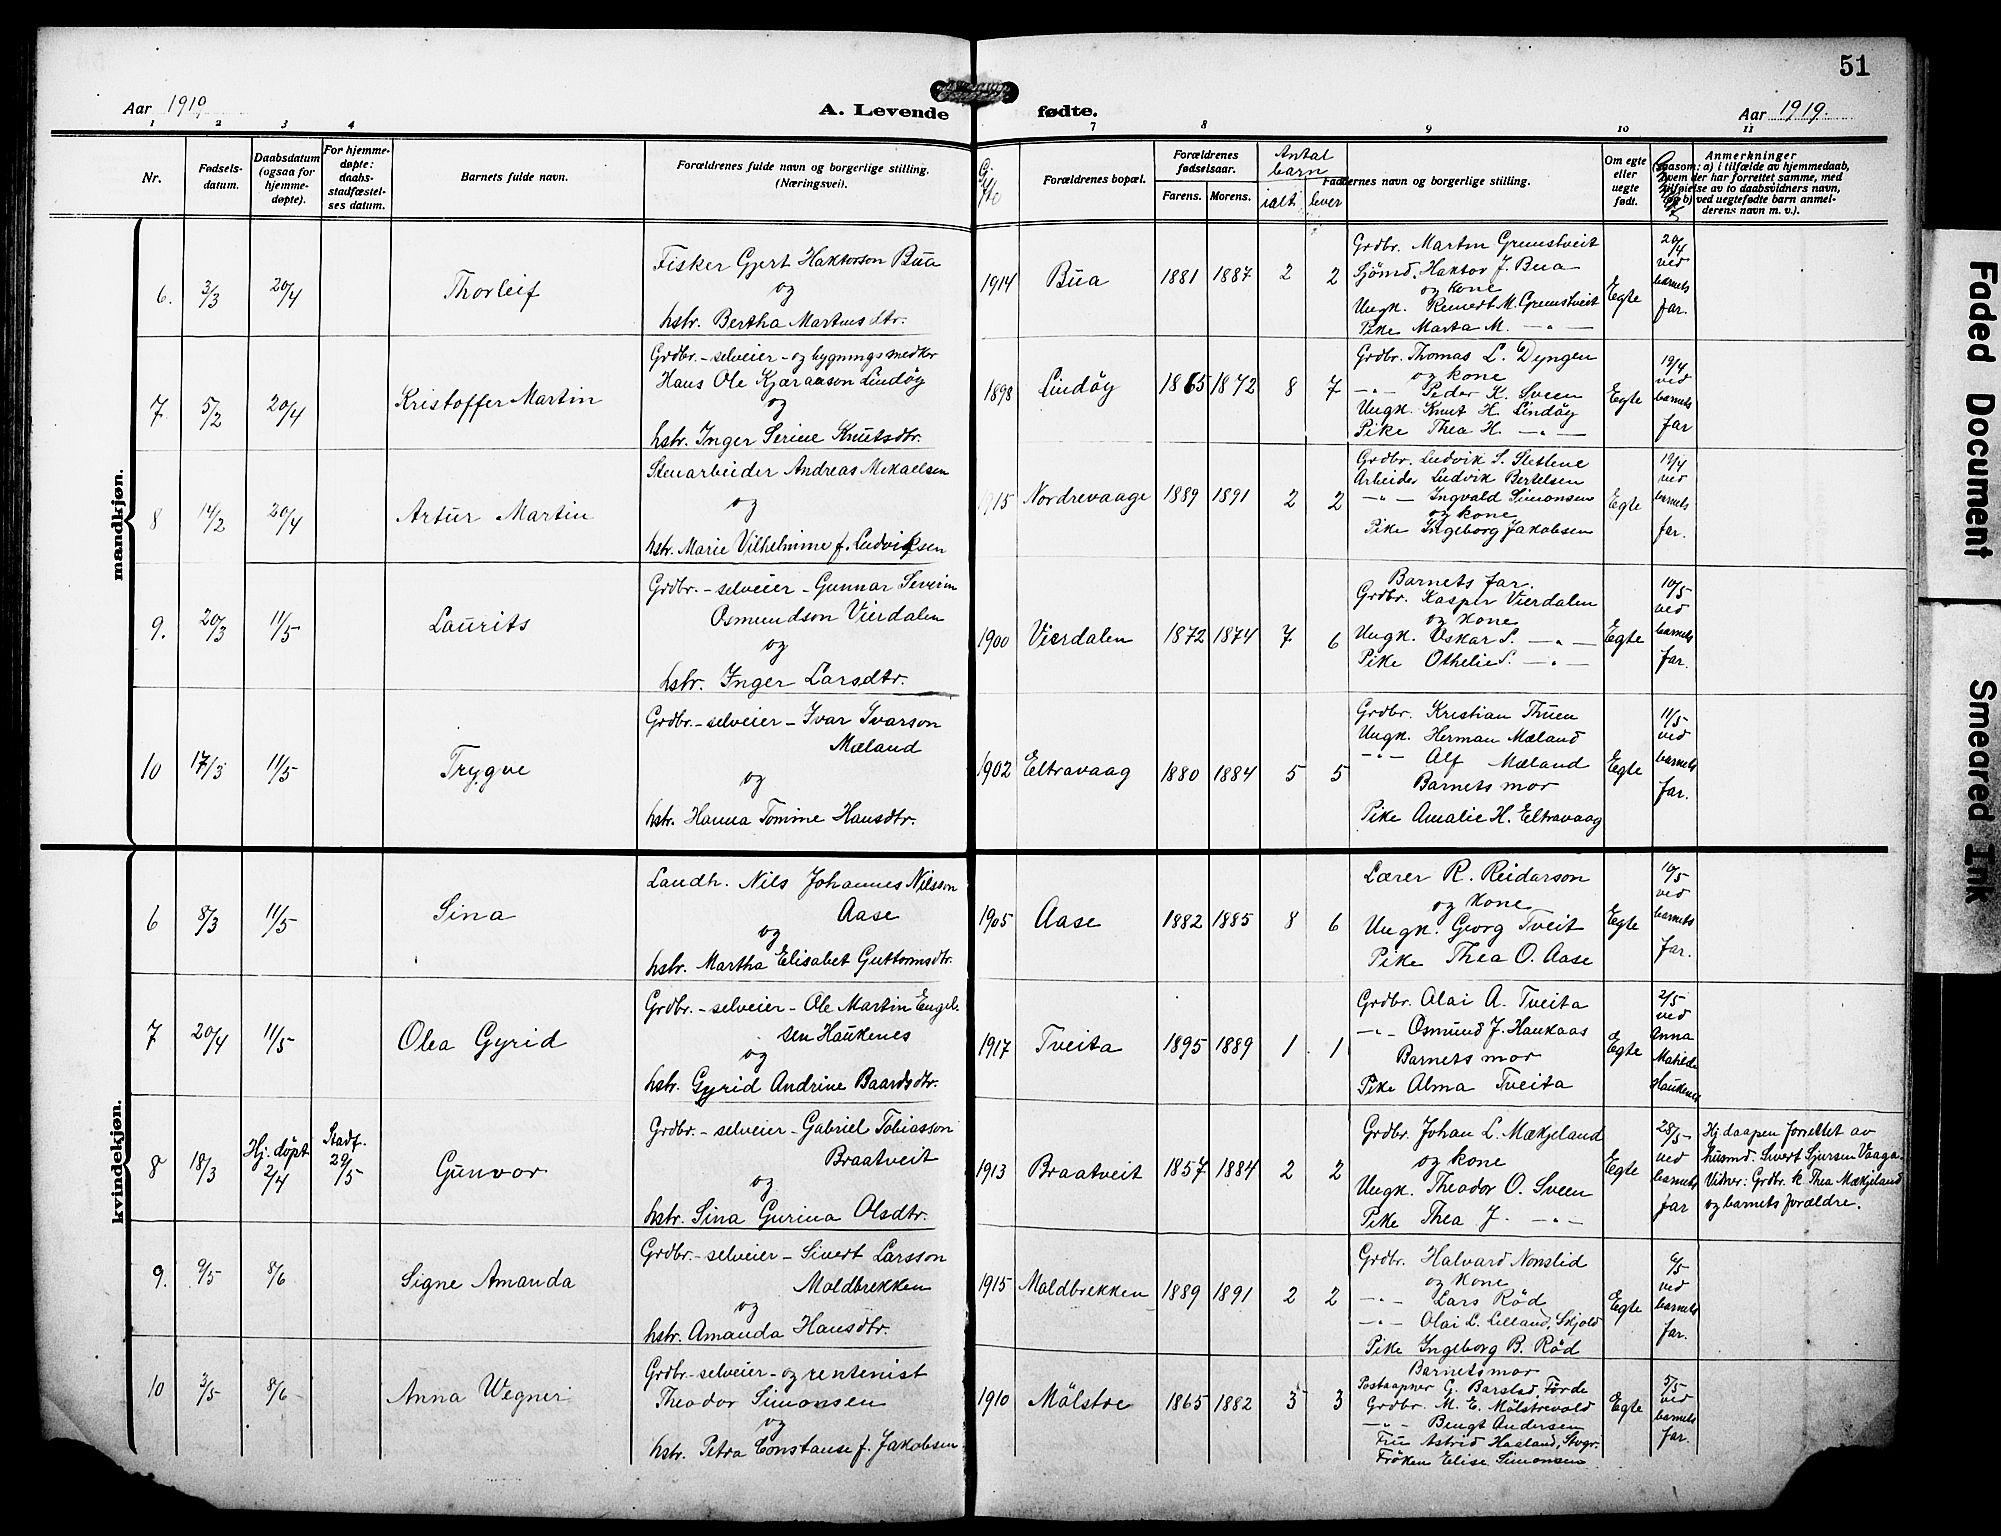 51
Aar 1919
A. Levende fødte.
Aar 1919.
1 2 3 4 7 8 9 10 11
Nr.
Fødsels-
datum.
Daabsdatum
(ogsaa for
hjemme-
døpte).
For hjemme-
døpte:
daabs-
stadfæstel-
ses datum.
Barnets fulde navn.
Forældrenes fulde navn og borgerlige stilling.
(Næringsvei).
Forældrenes bopæl.
Forældrenes
fødselsaar.
Farens. Morens.
Antal
barn
ialt lever
Faddernes navn og borgerlige stilling.
Om egte
eller
uegte
født.
Anmerkninger
(saasom: a) i tilfælde av hjemmedaab,
hvem der har forrettet samme, med
tilføielse av to daabsvidners navn,
og b) ved uegtefødte barn anmel-
derens navn m. v.).
mandkjøn.
6. 3/3 20/4 Thorleif
Fisker Gjert Haktorson Bua
og
hstr. Bertha Martinsdtr.
1914 Bua 1881 1887 2 2
Grdbr. Martin Gremstveit
Sjömd. Haktor J. Bua
og kone
Ungk. Reinert M. Gremstveit
Pike Marta M. — " —
Egte
20/4
ved
barnets
far.
7. 5/2 20/4 Kristoffer Martin
Grdbr. - selveier - og bygningsmedkr
Hans Ole Kjæraason Lindöy
og
hstr. Inger Serine Knutsdtr.
1898 Lindöy 1865 1872 8 7
Grdbr. Thomas L. Dyngen
og kone
— " — Peder K. Sveen
Ungk. Knut H. Lindöy
Pike Thea H. — " —
Egte
19/4
ved
barnets
far
8 14/2 20/4 Artur Martin
Stenarbeider Andreas Mikaelsen
og
hstr. Marie Vilhelmine f. Ludviksen
1915 Nordrevaage 1889 1891 2 2
Grdbr. Ludvik S. Sletlene
Arbeider Ludvik Bertelsen
— " — Ingvald Simonsen
og kone
Pike Ingeborg Jakobsen
Egte
19/4
ved
barnets
far.
9. 20/3 11/5 Laurits
Grdbr. - selveier - Gunnar Severin
Osmundson Vierdalen
og
hstr. Inger Larsdtr.
1900 Vierdalen 1872 1874 7 6
Barnets far.
Grdbr. Kasper Vierdalen
og kone
Ungk. Oskar S. — " —
Pike Othelie S. — " —
Egte
10/5
ved
barnets
far.
10 17/3 11/5 Trygve
Grdbr. - selveier - Ivar Ivarson
Mæland
og
hstr. Hanna Tomine Hansdtr.
1902 Eltravaag 1880 1884 5 5
Grdbr. Kristian Thuen
Ungk. Herman Mæland
— " — Alf Mæland
Barnets mor
Pike Amalie H. Eltravaag
Egte
11/5
ved
barnets
far.
kvindekjøn.
6 8/3 11/5 Sina
Landh. Nils Johannes Nilsson
Aase
og
hstr. Martha Elisabet Guttormsdtr.
1905 Aase 1882 1885 8 6
Lærer R. Reidarson
og kone
Ungk. Georg Tveit
Pike Thea O. Aase
Egte
10/5
ved
barnets
far.
7 20/4 11/5 Olea Gyrid
Grdbr. - selveier - Ole Martin Engel-
sen Haukenes
og
hstr. Gyrid Andrine Baardsdtr.
1917 Tveita 1895 1889 1 1
Grdbr. Olai A. Tveita
— " — Osmund J. Haukaas
Barnets mor
Pike Alma Tveita
Egte
2/5
ved
Anna
Matilde
Haukenes
8 18/3 Hj. döpt 2/4 Stadf. 29/5 Gunvor
Grdbr. - selveier - Gabriel Tobiasson
Braatveit
og
hstr. Sina Gurina Olsdtr.
1913 Braatveit 1857 1884 2 2
Grdbr. Johan L. Mækjeland
og kone
Ungk. Theodor O. Sveen
Pike Thea J. — " —
Egte
28/5
ved
barnets
far
Hj.daapen forrettet av
husmd. Sivert Sjursen Vaaga.
Vidner: Grdbr. k. Thea Mækjeland
og barnets forældre.
9. 9/5 8/6 Signe Amanda
Grdbr. - selveier - Sivert Larsson
Moldbrekken
og
hstr. Amanda Hansdtr.
1915 Moldbrekken 1889 1891 2 2
Grdbr. Halvard Nonslid
og kone
— " — Lars Röd
— " — Olai L. Lilland, Skjold
Pike Ingeborg B. Röd
Egte
6/5
ved
barnets
far.
10 3/5 8/6 Anna Wegner
Grdbr. - selveier - og rentenist
Theodor Simonsen
og
hstr. Petra Constanse f. Jakobsen
1910 Mölstre 1865 1882 3 3
Barnets mor
Postaapner G. Barstad, Förde
Grdbr. M. E. Mölstrevold
— " — Bengt Andersen
Fru Astrid Haaland, Stvgr.
Fröken Elise Simonsen
Egte
5/5
ved
barnets
far.
Faded Document
Smeared Ink